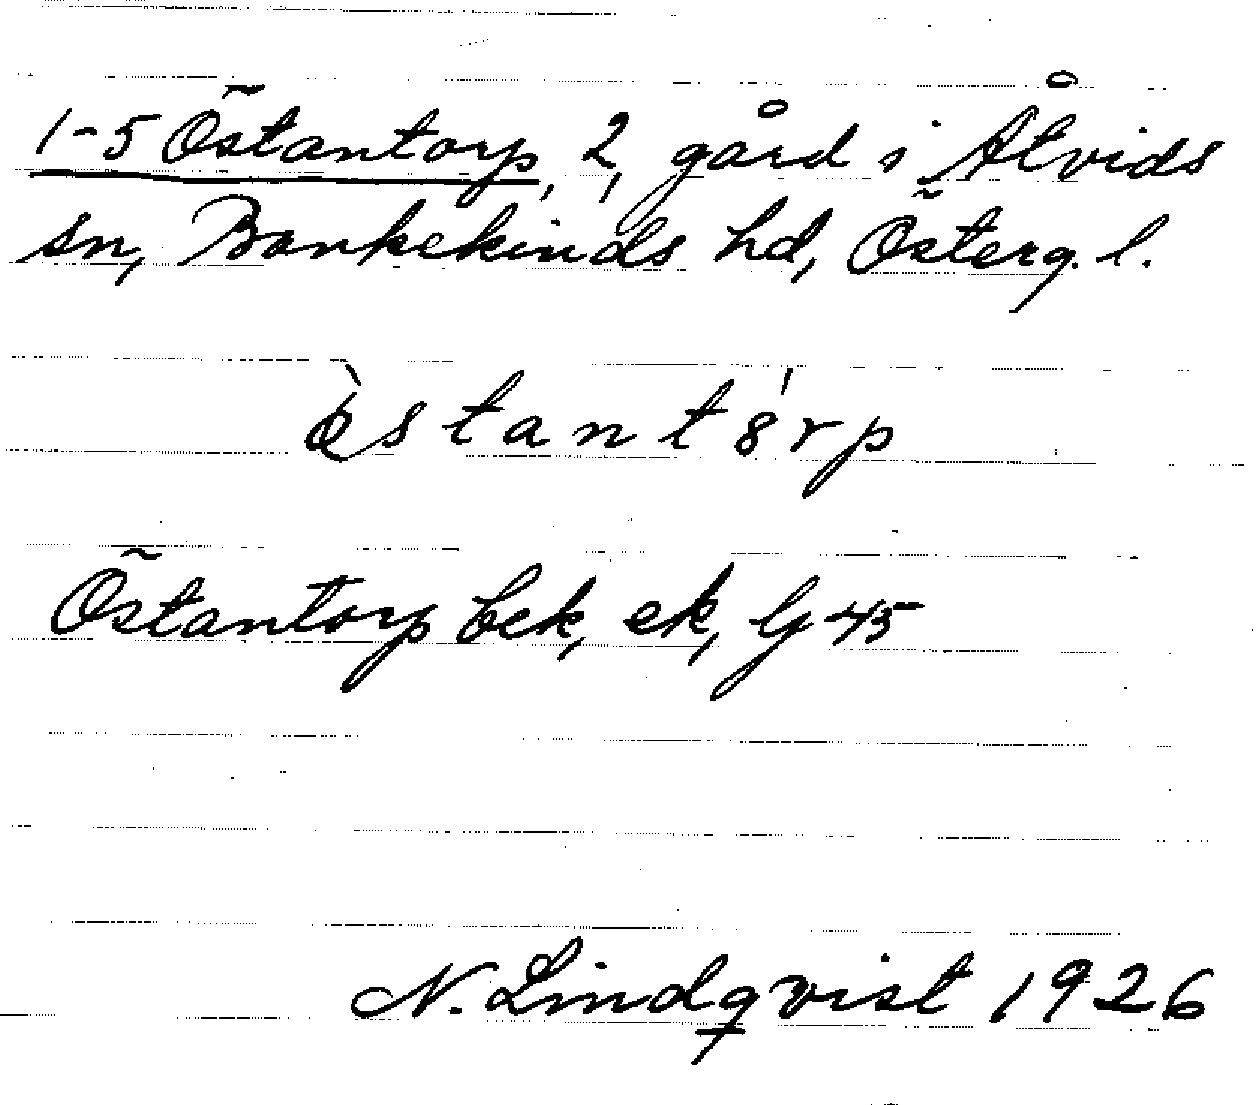 1-5 Östantorp, 2, gård i Åtvids
sn, Bankekinds hd, Österg. l.
Östantorp bek, ek, Gj 45
N. Lindqvist 1926